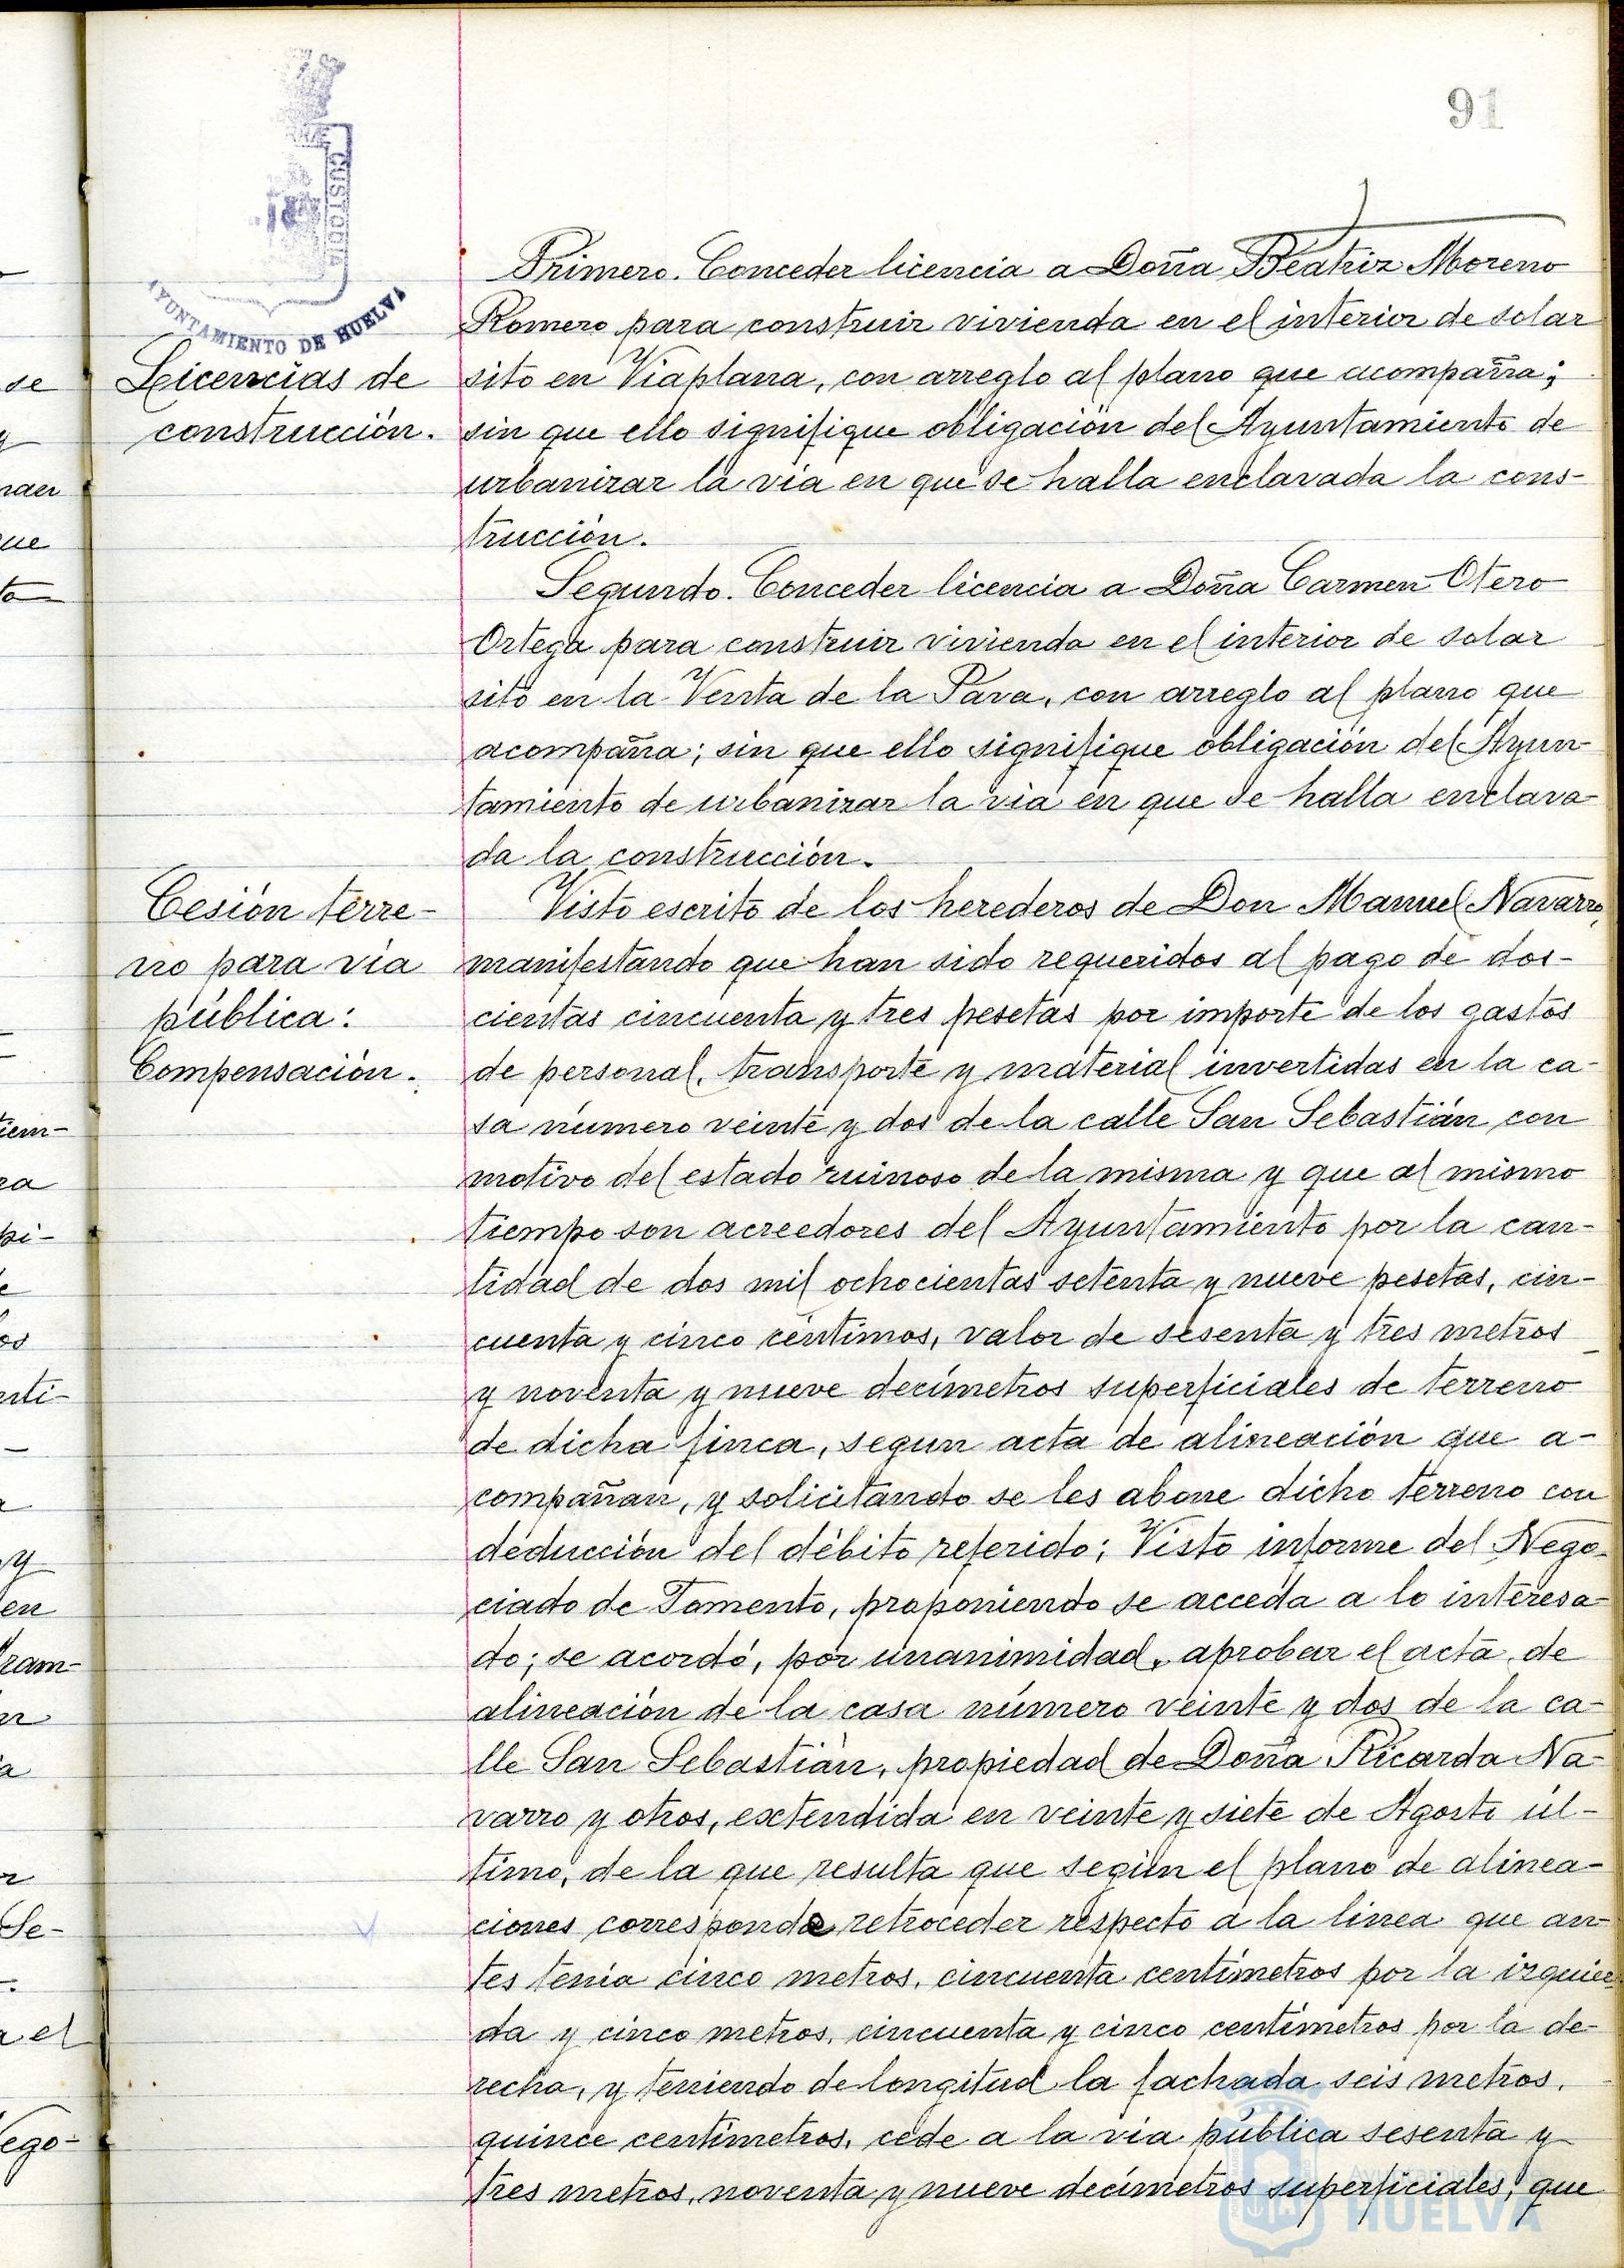 91
CUSTODIA
AYUNTAMIENTO DE HUELVA
Licencias de
construcción.
Primero. Conceder licencia a Doña Beatriz Moreno
Romero para construir vivienda en el interior de solar
sito en Viaplana, con arreglo al plano que acompaña;
sin que ello signifique obligación del Ayuntamiento de
urbanizar la vía en que se halla enclavada la cons-
trucción.
Segundo. Conceder licencia a Doña Carmen Otero
Ortega para construir vivienda en el interior de solar
sito en la Venta de la Pava, con arreglo al plano que
acompaña; sin que ello signifique obligación del Ayun-
tamiento de urbanizar la vía en que se halla enclava-
da la construcción.
Cesión terre-
no para vía
pública:
Compensación.
Visto escrito de los herederos de Don Manuel Navarro,
manifestando que han sido requeridos al pago de dos-
cientas cincuenta y tres pesetas por importe de los gastos
de personal, transporte y material invertidas en la ca-
sa número veinte y dos de la calle San Sebastián con
motivo del estado ruinoso de la misma y que al mismo
tiempo son acreedores del Ayuntamiento por la can-
tidad de dos mil ochocientas setenta y nueve pesetas, cin-
cuenta y cinco céntimos, valor de sesenta y tres metros
y noventa y nueve decímetros superficiales de terreno
de dicha finca, segun acta de alineación que a-
compañan, y solicitando se les abone dicho terreno con
deducción del débito referido; Visto informe del Nego-
ciado de Fomento, proponiendo se acceda a lo interesa-
do; se acordó, por unanimidad, aprobar el acta de
alineación de la casa número veinte y dos de la ca-
lle San Sebastián, propiedad de Doña Ricarda Na-
varro y otros, extendida en veinte y siete de Agosto úl-
timo, de la que resulta que según el plano de alinea-
ciones corresponde retroceder respecto a la linea que an-
tes tenía cinco metros, cincuenta centímetros por la izquier-
da y cinco metros, cincuenta y cinco centímetros por la de-
recha, y teniendo de longitud la fachada seis metros,
quince centímetros, cede a la vía pública sesenta y
tres metros, noventa y nueve decímetros superficiales, que
Ayuntamiento de
HUELVA